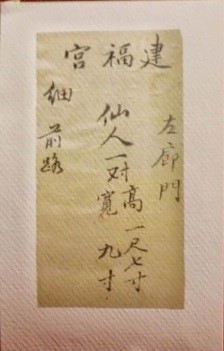 建福宮
左廊門
仙人一对高一尺七寸
寬九寸
細前路